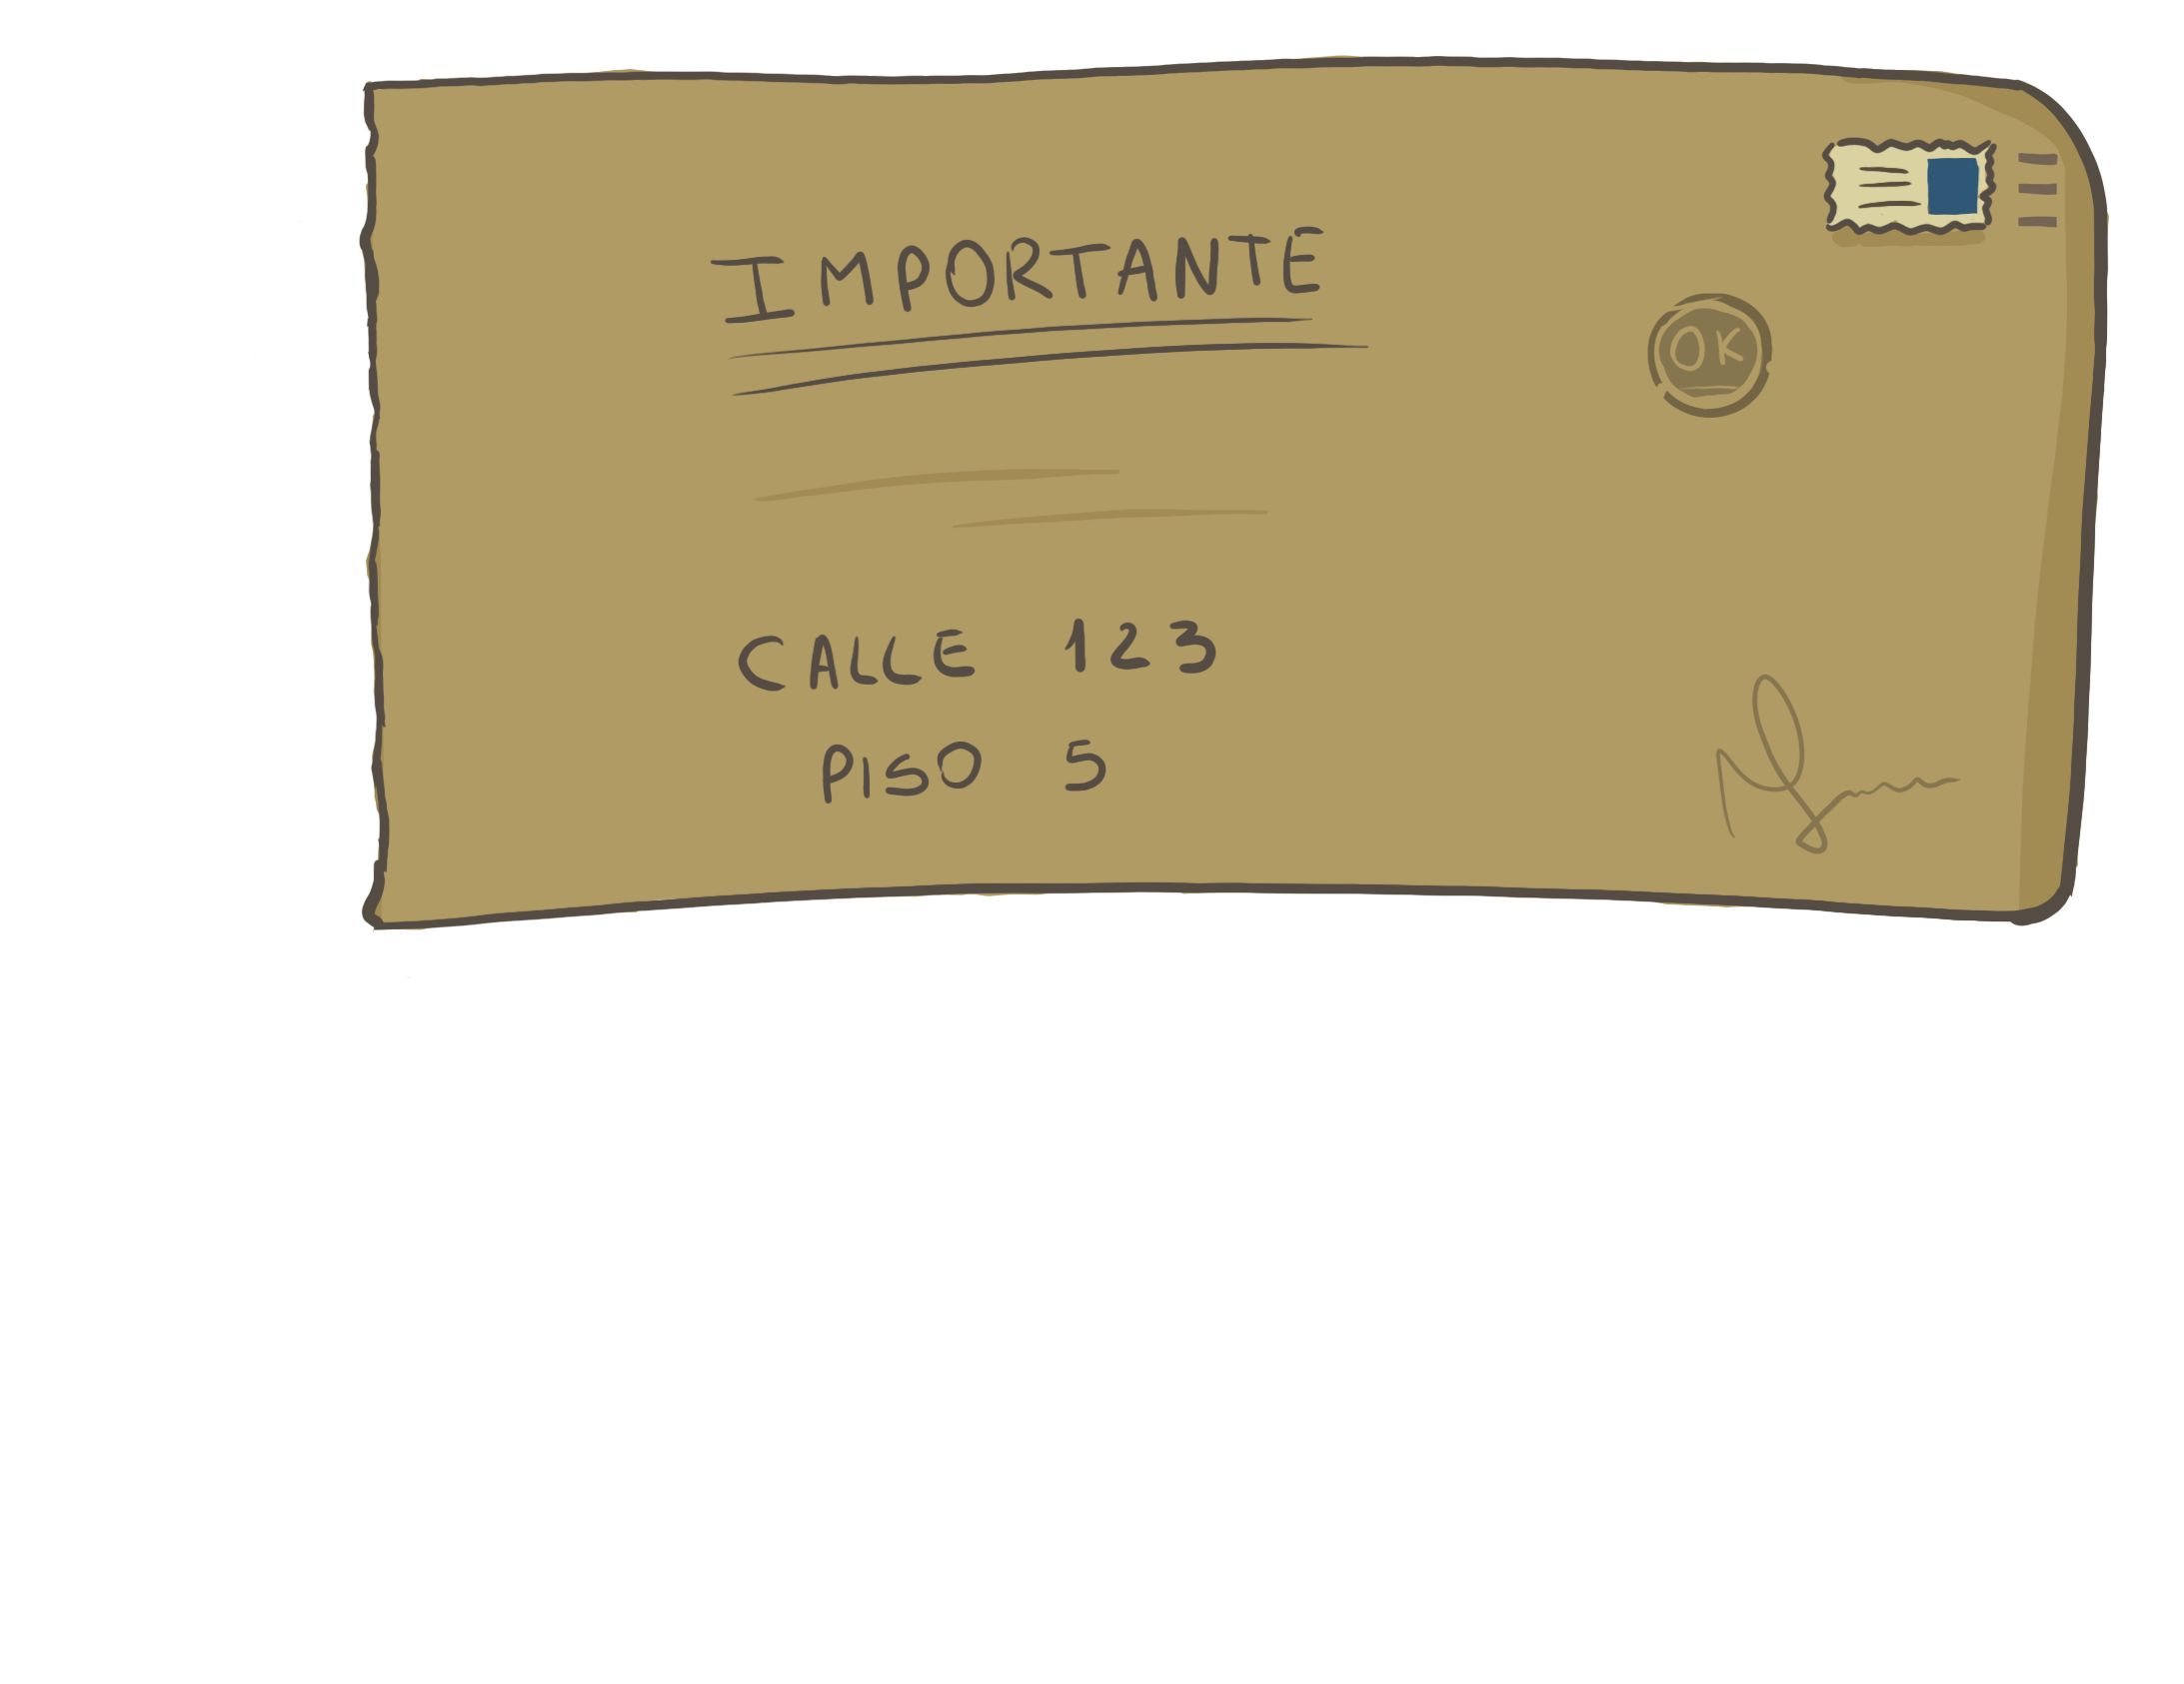 IMPORTANTE
OK
CALLE 123
PISO 5